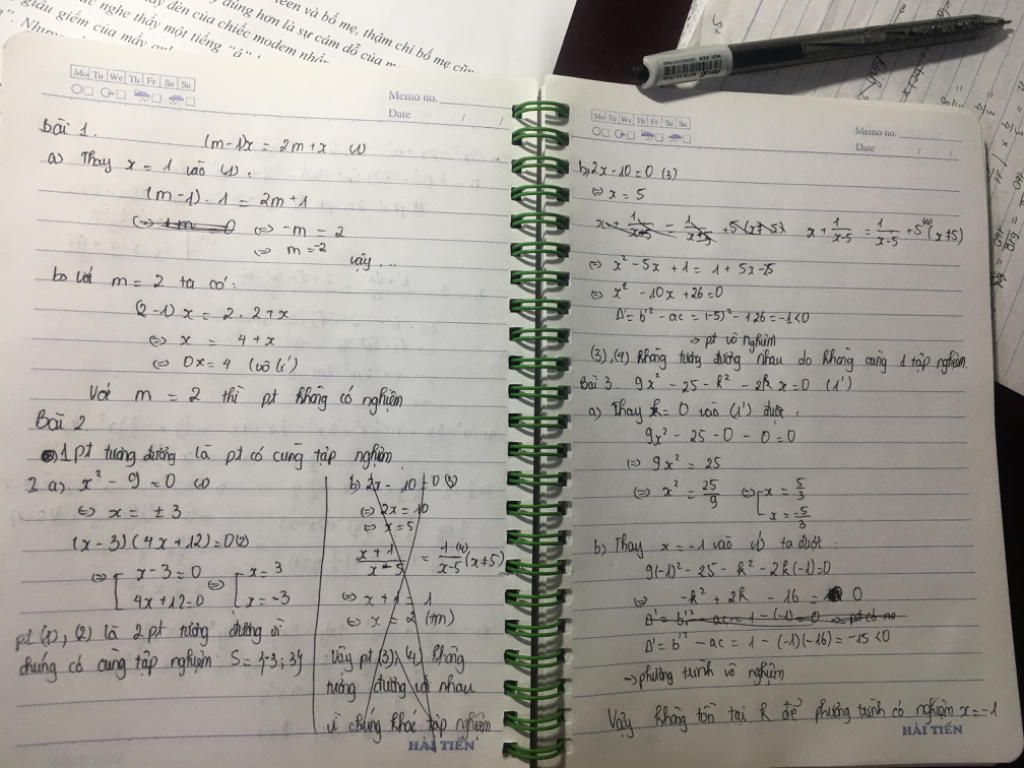 teen và bố mẹ, thậm chí bố mẹ cũn
dụng hơn là sự cám dỗ của m
đèn của chiếc modem nhấp
nghe thấy một tiếng
giấu giếm của mấy
Mo Tu We Th Fr Sa Su
Memo no.
Date / /
Bài 1.
(m-1)x = 2m+x (1)
a) Thay x = 1 vào (1).
(m-1).1 = 2m+1
(=> -m = 2
<=> m = -2
vậy ...
b) với m = 2 ta có:
(2-1)x = 2.2+x
<=> x = 4+x
<=> 0x=4 (vô lí)
Với m = 2 thì pt không có nghiệm
Bài 2
1 pt tương đương là pt có cùng tập nghiệm
2 a) x² - 9 = 0 (1)
<=> x = ±3
(x-3)(4x+12)=0(2)
<=> [ x-3=0 <=> [ x=3
4x+12=0 x=-3
pt (1), (2) là 2 pt tương đương vì
chúng có cùng tập nghiệm S={-3;3}
b) 2x - 10 = 0 (3)
<=> 2x = 10
<=> x = 5
x+1/x-5 = 1/x-5 (4) (x≠5)
<=> x+1 = 1
<=> x = 2 (tm)
Vậy pt (3), (4) không
tương đương với nhau
vì chúng khác tập nghiệm
HẢI TIẾN
Mo Tu We Th Fr Sa Su
Memo no.
Date / /
b) 2x-10=0 (3)
<=> x = 5
x + 1/x-5 = 1/x-5 +5 (x≠5) x + 1/x-5 = 1/x-5 +5 (4) (x≠5)
<=> x² -5x + 1 = 1 + 5x-25
<=> x² -10x +26=0
Δ'= b'² - ac = (-5)² - 1.26 = -1<0
=> pt vô nghiệm
(3), (4) không tương đương nhau do không cùng 1 tập nghiệm.
Bài 3. 9x² - 25 - k² - 2kx=0 (1')
a) Thay k = 0 vào (1') được:
9x² - 25 - 0 - 0 = 0
(=) 9x² = 25
(=) x² = 25/9 <=> [ x = 5/3
x = -5/3
b) Thay x = -1 vào (1') ta được:
9(-1)² - 25 - k² - 2k(-1)=0
<=> -k² + 2k - 16 = 0
Δ' = b'² - ac = 1 - (-1) = 0 => pt có no
Δ' = b'² - ac = 1 - (-1)(-16) = -15 <0
→ phương trình vô nghiệm
Vậy không tồn tại k để phương trình có nghiệm x=-1
HẢI TIẾN